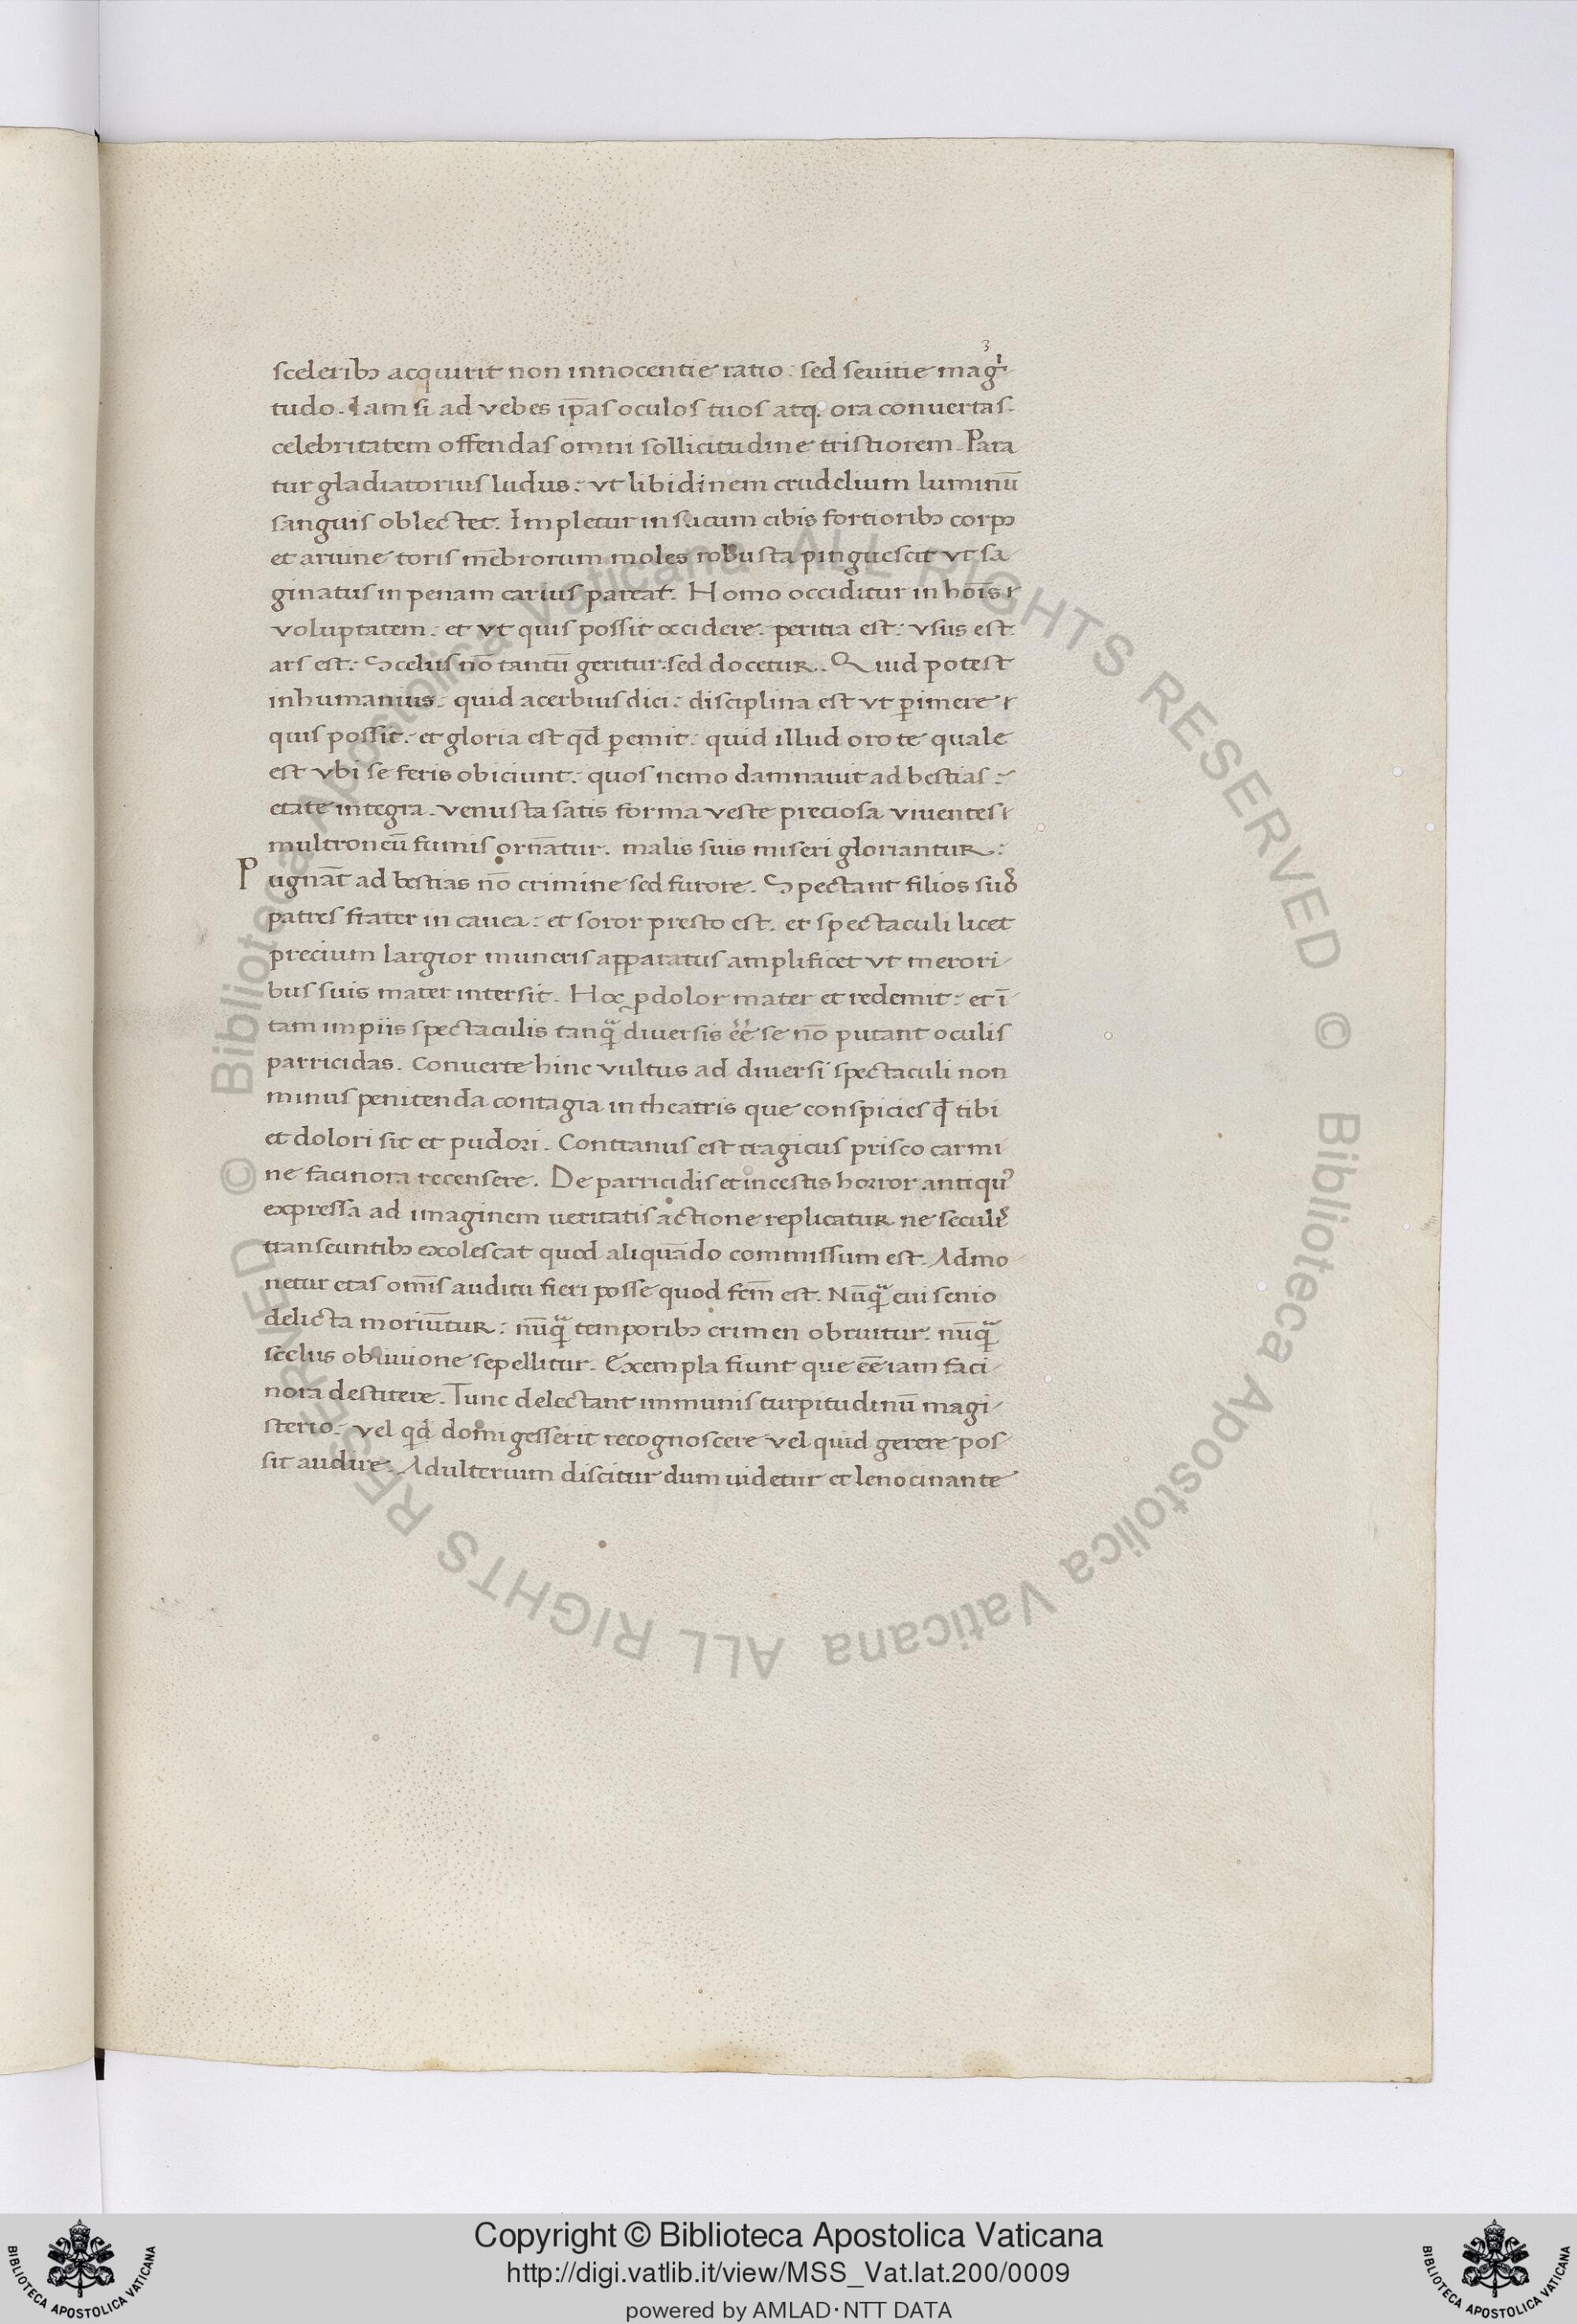 3
sceleribꝫ acquirit non innocentie ratio: sed seuitie magͥ
tudo. Iam si ad vebes ip̄as oculos tuos atq. ora conuertas.
celebritatem offendas omni sollicitudine tristiorem. Para
tur gladiatorius ludus: vt libidinem crudelium luminū
sanguis oblectet. Impletur in sucum cibis fortioribꝫ corpꝫ
et aruine toris mēbrorum moles robusta pinguescit vt sa
ginatus in penam carius pareat. Homo occiditur in hoīs
voluptatem: et vt quis possit occidere. peritia est: vsus est.
ars est: Scelus nō tantū geritur. sed docetur. Quid potest
inhumanius: quid acerbius dici: disciplina est vt ꝑimere
quis possit: et gloria est qd̄ ꝑemit: quid illud oro te quale
est vbi se feris obiciunt: quos nemo damnauit ad bestias:
etate integra. venusta satis forma veste preciosa viuentes
multroncū fumis ornātur. malis suis miseri gloriantur:
Pugnāt ad bestias nō crimine sed furore. Spectant filios suoͬ
patres frater in cauea: et soror presto est. et spectaculi licet
precium largior muneris apparatus amplificet vt merori
bus suis mater intersit. Hoc ꝓdolor mater et redemit: et ī
tam impiis spectaculis tanqͣ diuersis eēͬ se nō putant oculis
parricidas. Conuerte hinc vultus ad diuersi spectaculi non
minus penitenda contagia in theatris que conspicies q̄ tibi
et dolori sit et pudori. Contranus est tragicus prisco carmi
ne facinora recensere. De parricidis et incestis horror antiquꝰ
expressa ad imaginem ueritatis actione replicatur ne seculiͬ
transeuntibꝫ exolescat quod aliquādo commissum est. Admo
netur etas om̄is auditu fieri posse quod fcm̄ est. Nūqͣ eui senio
delicta moriūtur: nūqͣ temporibꝫ crimen obruitur. nūqͣ
scelus obliuione sepellitur. Exempla fiunt que eē iam faci
nora destitere. Tunc delectant immunis turpitudinū magi
sterio. vel qd̄ domi gesserit recognoscere vel quid gerere pos
sit audire. Adulterium discitur dum uidetur et lenocinante
© Biblioteca Apostolica Vaticana ALL RIGHTS RESERVED © Biblioteca Apostolica Vaticana ALL RIGHTS RESERVED
Copyright © Biblioteca Apostolica Vaticana
http://digi.vatlib.it/view/MSS_Vat.lat.200/0009
powered by AMLAD·NTT DATA
BIBLIOTECA APOSTOLICA VATICANA
BIBLIOTECA APOSTOLICA VATICANA